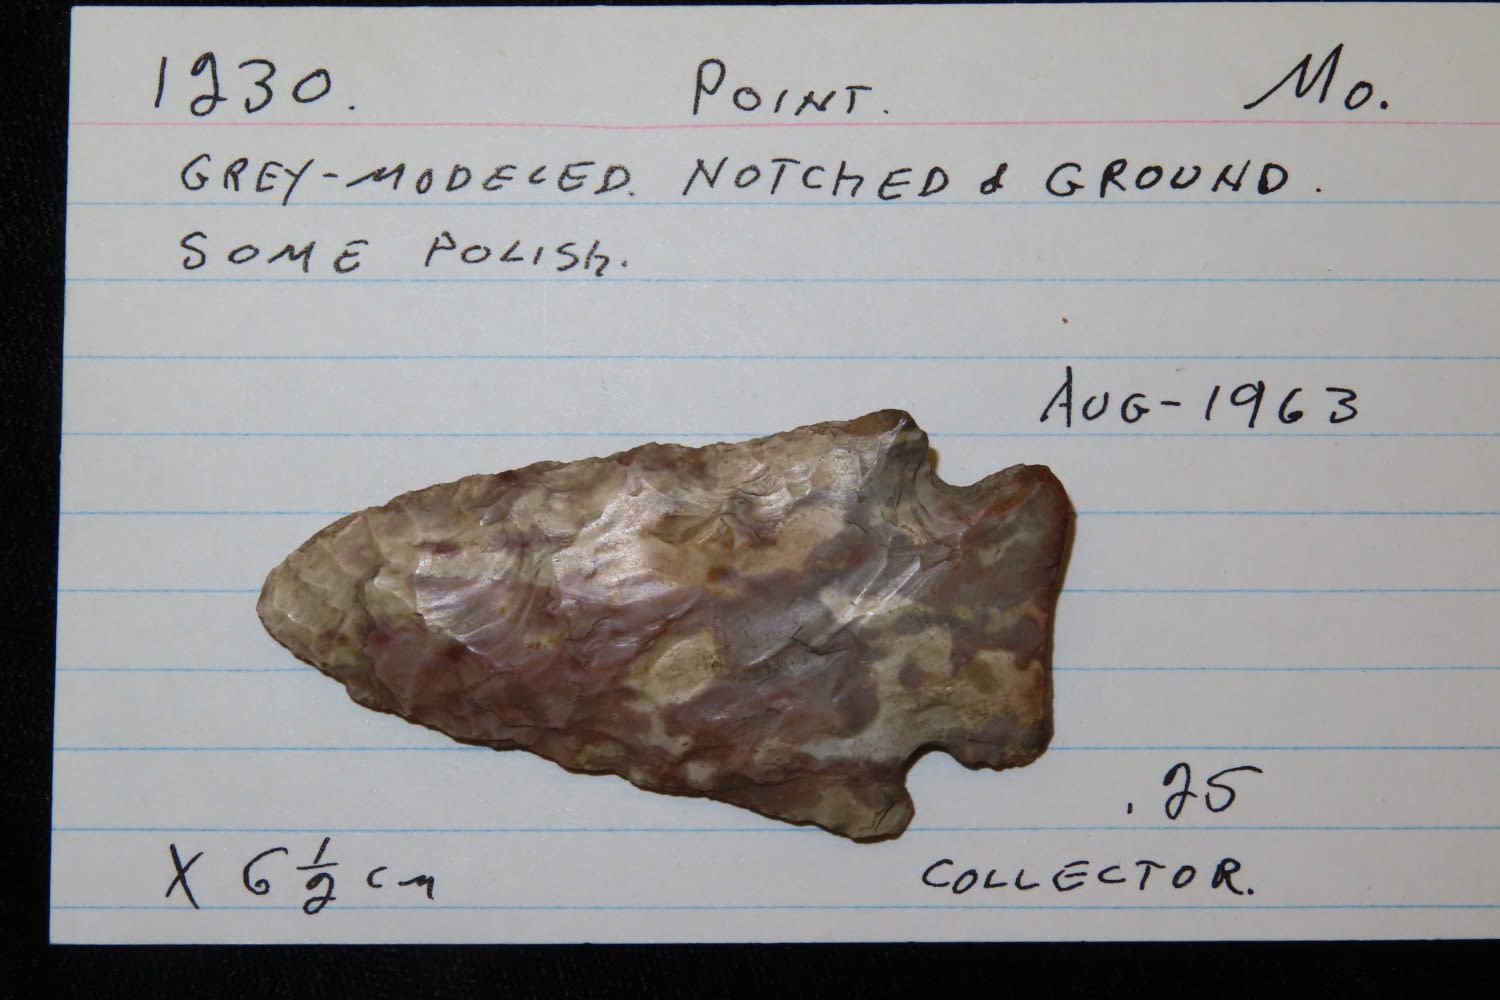 1230. POINT. Mo.
GREY-MODELED. NOTCHED & GROUND.
SOME POLISH.
AUG-1963
.25
X 6 1/2 cm COLLECTOR.